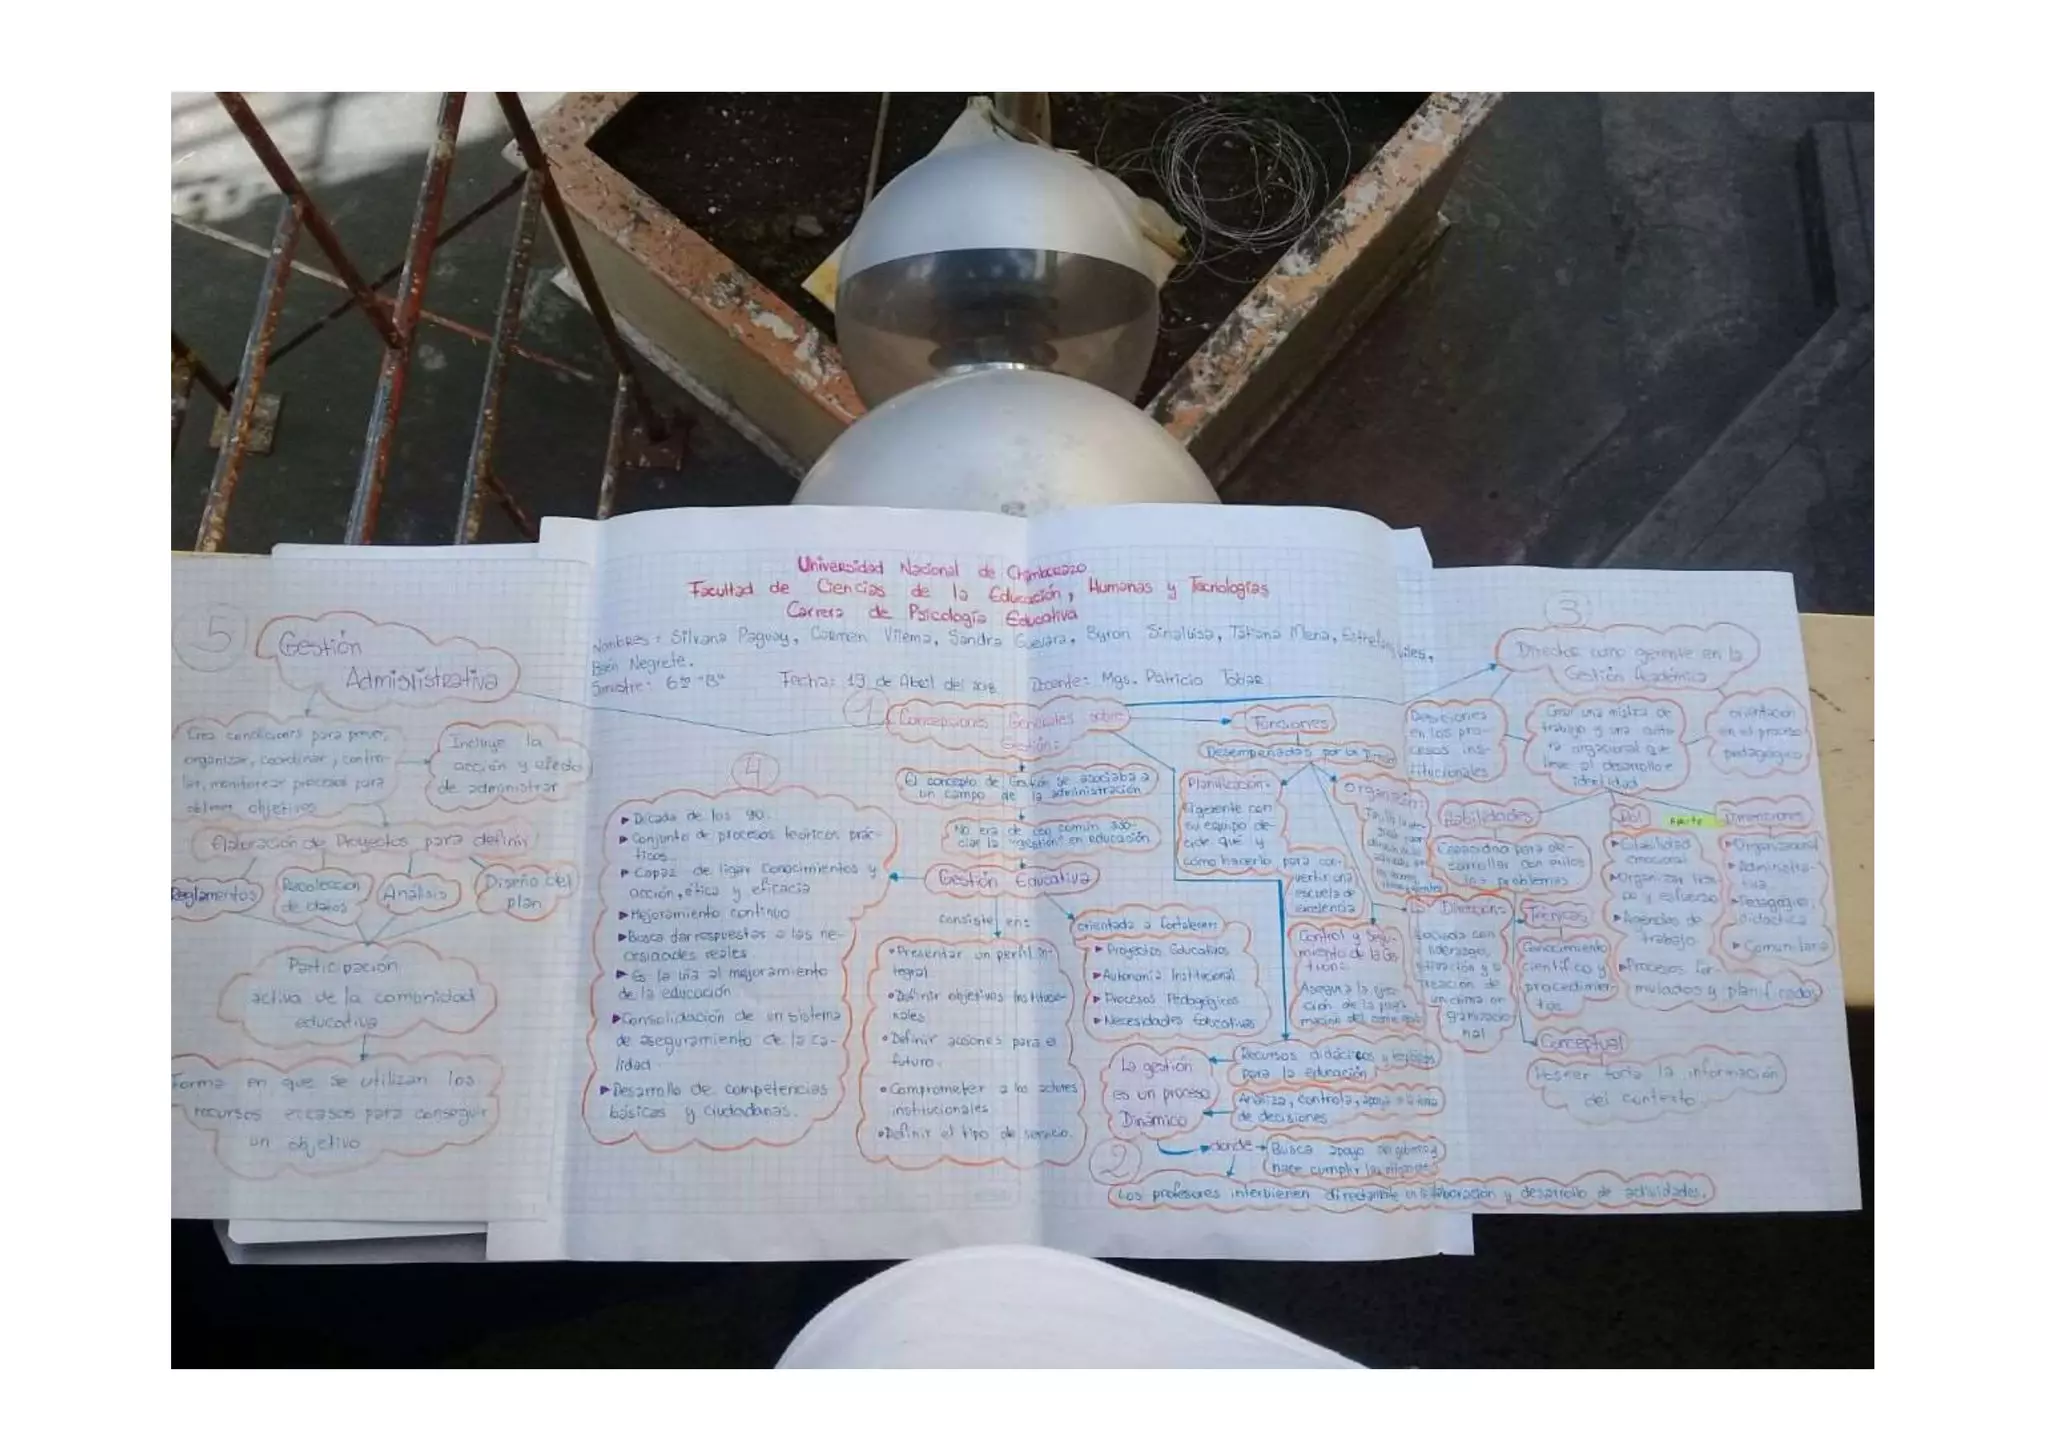 Universidad Nacional de Chimborazo
Facultad de Ciencias de la Educación, Humanas y Tecnologías
Carrera de Psicología Educativa
Nombres: Silvana Paguay, Carmen Vilema, Sandra Guevara, Byron Sinaluisa, Tatiana Mena,
Negrete.
6to "B" Fecha: 19 de Abril del 2018 Docente: Mgs. Patricio Tobar
5
Gestión
Administrativa
Crea condiciones para prever,
organizar, coordinar, contro-
lar, monitorear procesos para
obtener objetivos
Incluye la
acción y efecto
de administrar
Elaboración de Proyectos para definir:
Reglamentos
Recolección
de datos
Análisis
Diseño del
plan
Participación
activa de la comunidad
educativa
Forma en que se utilizan los
recursos escasos para conseguir
un objetivo
4
▶ Década de los 90.
▶ Conjunto de procesos teóricos prác-
ticos
▶ Capaz de ligar conocimientos y
acción, ética y eficacia
▶ Mejoramiento continuo
▶ Busca dar respuestas a las ne-
cesidades reales.
▶ Es la vía al mejoramiento
de la educación
▶ Consolidación de un sistema
de aseguramiento de la ca-
lidad.
▶ Desarrollo de competencias
básicas y ciudadanas.
1
Concepciones Generales sobre
Gestión:
El concepto de Gestión se asociaba a
un campo de la administración
No era de uso común aso-
ciar la "gestión" en educación
Gestión Educativa
consiste en:
• Presentar un perfil in-
tegral
• Definir objetivos institucio-
nales
• Definir acciones para el
futuro.
• Comprometer a los actores
institucionales
• Definir el tipo de servicio.
orientada a fortalecer:
▶ Proyectos Educativos
▶ Autonomía Institucional
▶ Procesos Pedagógicos
▶ Necesidades Educativas
Funciones
Desempeñadas por un
Planificación:
El gerente con
su equipo de-
cide qué y
cómo hacerlo para con-
vertir una
escuela de
excelencia
Organización:
Control y Segui-
miento de la Ges
tion:
Asegura la
ción de la
2
La gestión
es un proceso
Dinámico
Recursos didácticos y
para la educación
Analiza, controla, apoya
de decisiones
donde
Busca apoyo del gobierno y
hace cumplir
Los profesores interbienen directamente en elaboración y desarrollo de actividades.
3
Director como gerente en la
Gestión Académica
Desiciones
en los pro-
cesos ins-
titucionales
Crear una mística de
trabajo y una cultu
ra organizional que
lleve al desarrollo e
identidad
orientación
en el proceso
pedagógico
Habilidades
para de-
sarrollar con éxitos
los problemas
Rol
Aparte
Dimenciones
Dirección:
liderazgo,
un clima or
ganizacio
nal
Técnicas
Conocimiento
científico y
procedimien-
tos
Conceptual
Poseer toda la información
del contexto.
▶ Estabilidad
emocional
▶ Organizar
y esfuerzo
▶ Agendas de
trabajo
▶ Procesos for-
mulados y planificados
▶ Organizacional
▶ Administra-
tiva
▶ Pedagógica,
didáctica
▶ Comunitaria